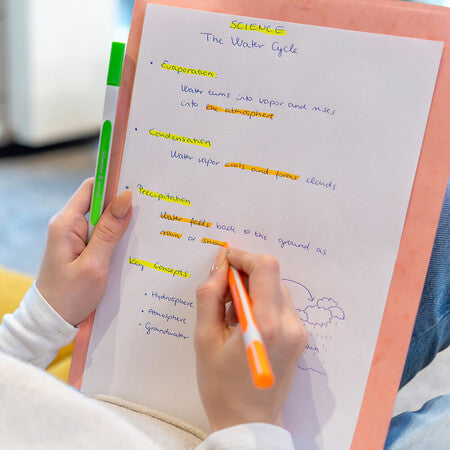 SCIENCE
The Water Cycle
• Evaporation:
Water turns into vapor and rises
into the atmosphere
• Condensation
Water vapor cools and forms clouds
• Precipitation
Water falls back to the ground as
rain or snow
Key Concepts:
• Hydrosphere
• Atmosphere
• Groundwater